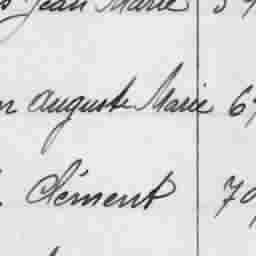 Jean Marie
Auguste Marie 6
Clément 79